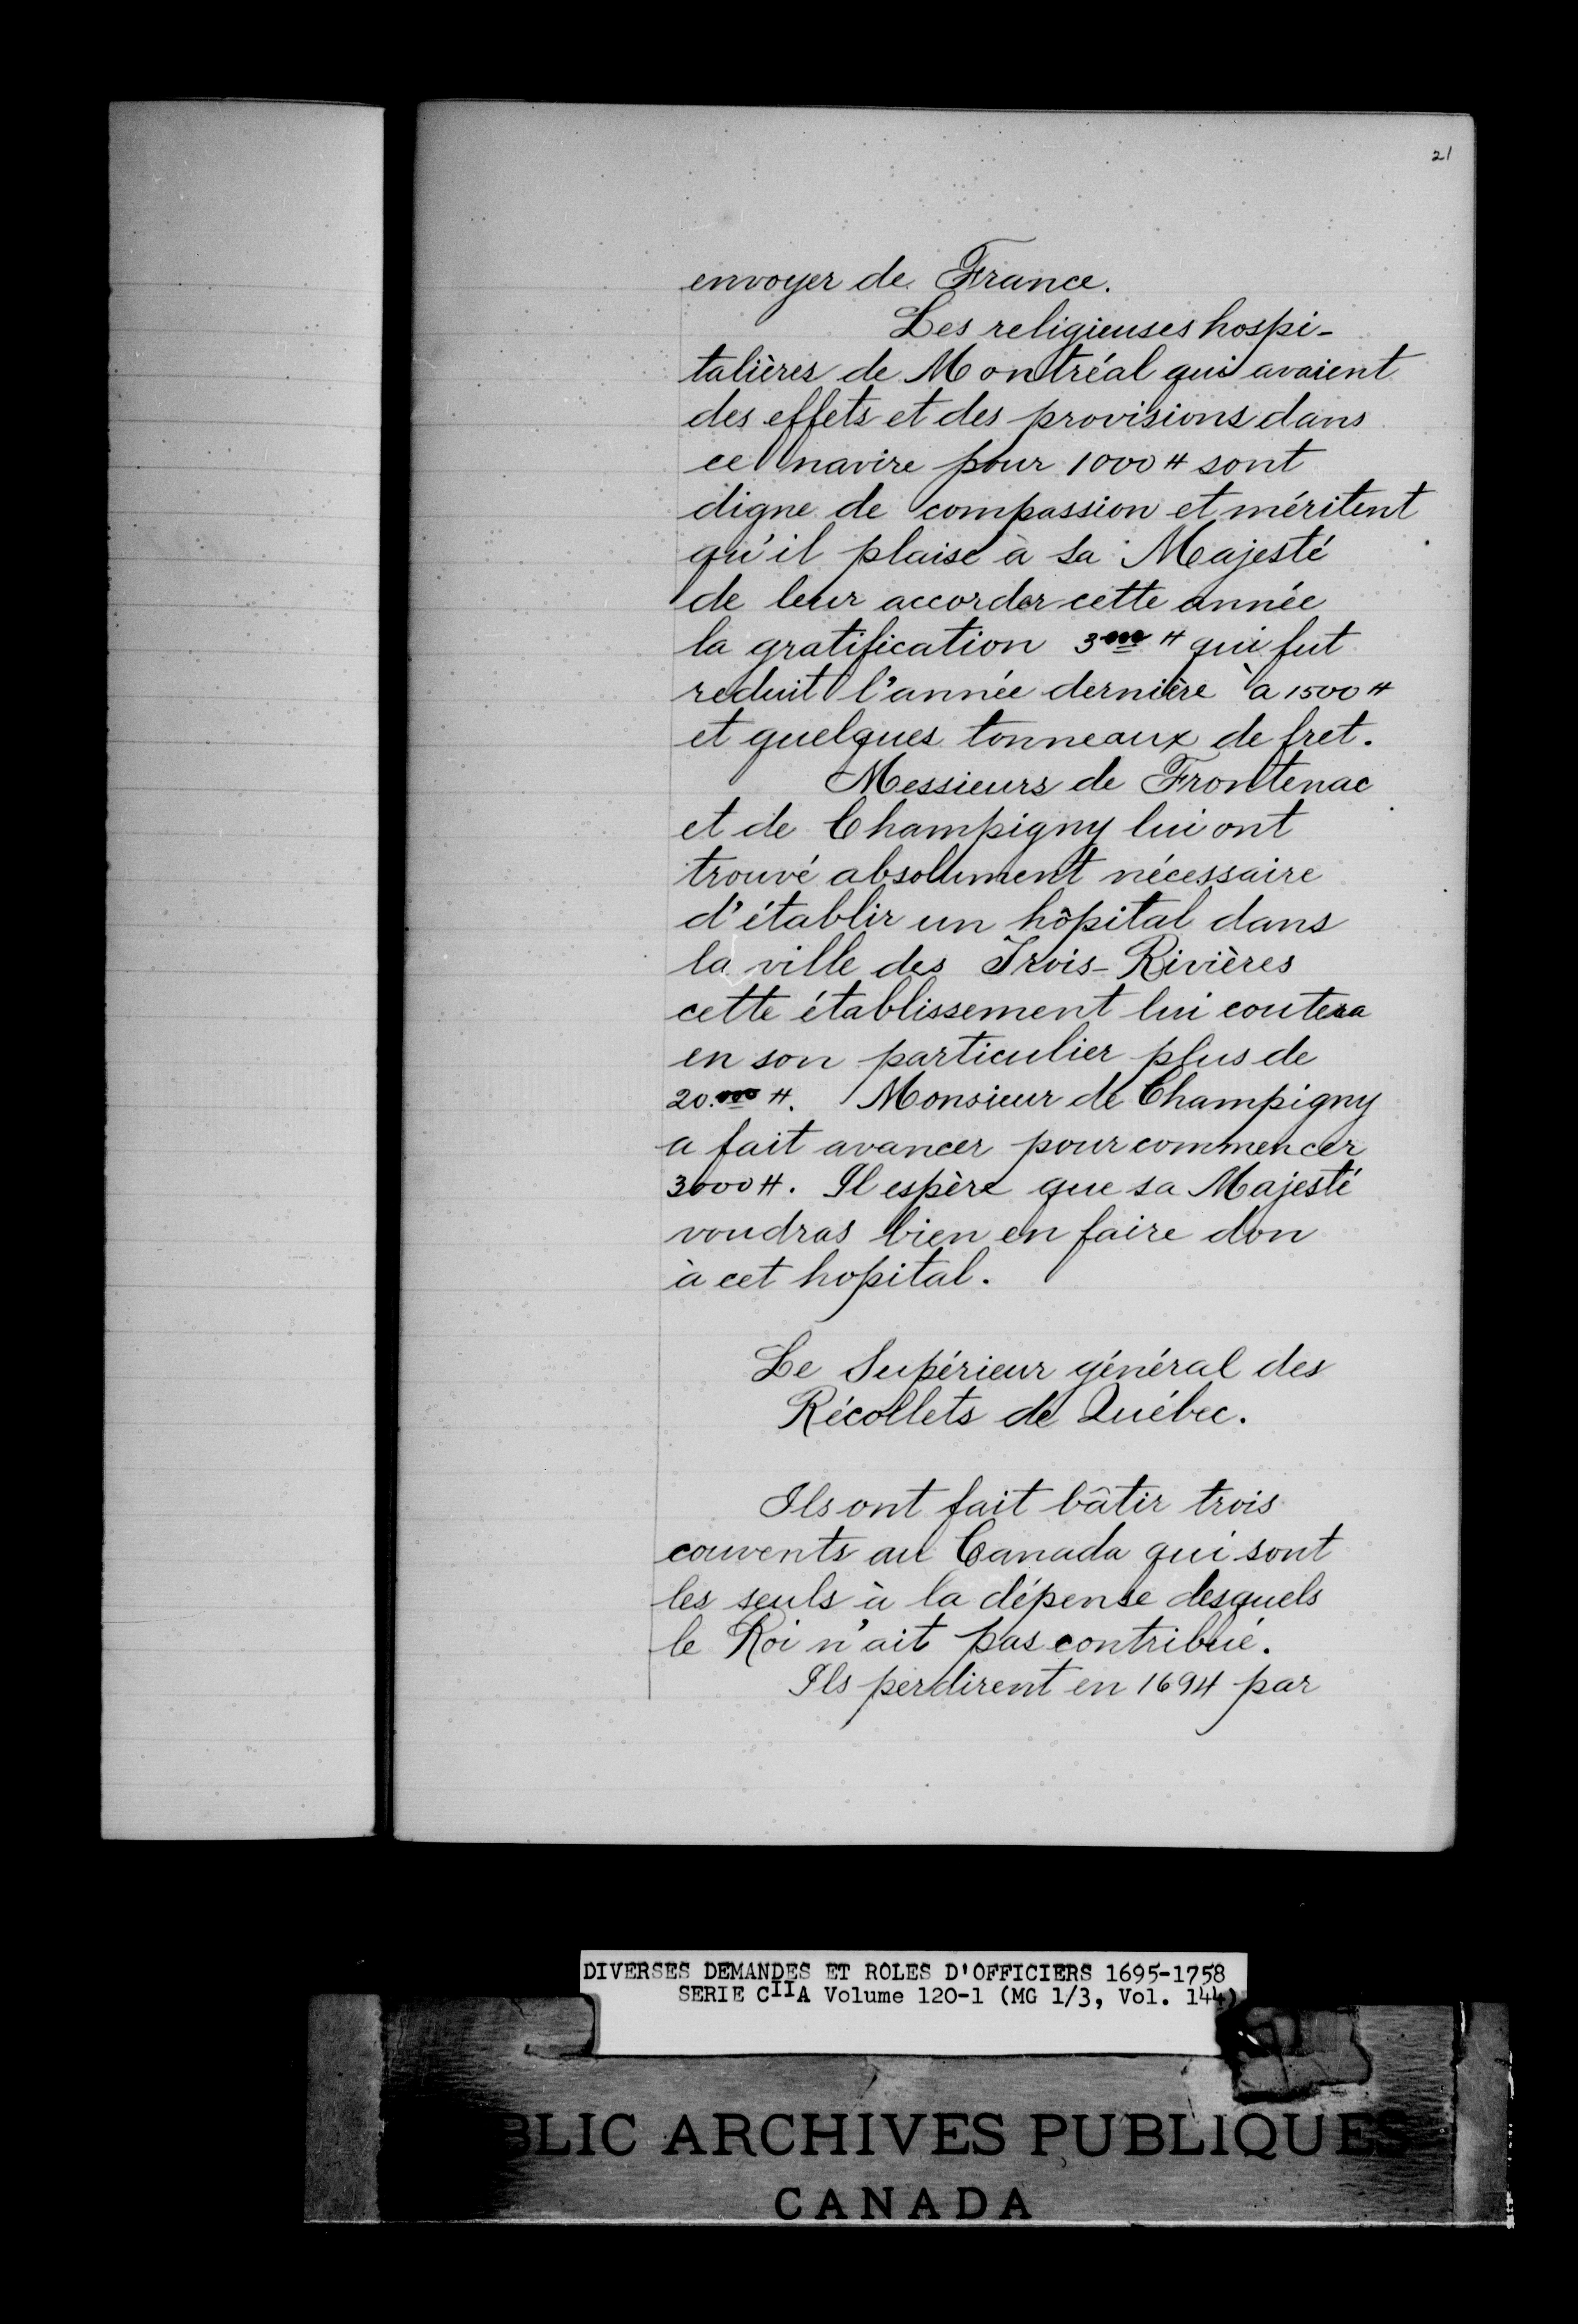 21
envoyer de France.
Les religieuses hospi-
talières de Montréal qui avaient
des effets et des provisions dans
ce navire pour 1000 ₶ sont
digne de compassion et méritent
qu'il plaise à sa Majesté
de leur accorder cette année
la gratification 3000 ₶ qui fut
reduit l'année dernière à 1500 ₶
et quelques tonneaux de fret.
Messieurs de Frontenac
et de Champigny lui ont
trouvé absolument nécessaire
d'établir un hôpital dans
la ville des Trois-Rivières
cette établissement lui coutera
en son particulier plus de
20.000 ₶. Monsieur de Champigny
a fait avancer pour commencer
3000 ₶. Il espère que sa Majesté
voudras bien en faire don
à cet hopital.
Le Supérieur général des
Récollets de Québec.
Ils ont fait bâtir trois
couvents au Canada qui sont
les seuls à la dépense desquels
le Roi n'ait pas contribué.
Ils perdirent en 1694 par
DIVERSES DEMANDES ET ROLES D'OFFICIERS 1695-1758
SERIE CIIA Volume 120-1 (MG 1/3, Vol. 144)
BLIC ARCHIVES PUBLIQUES
CANADA